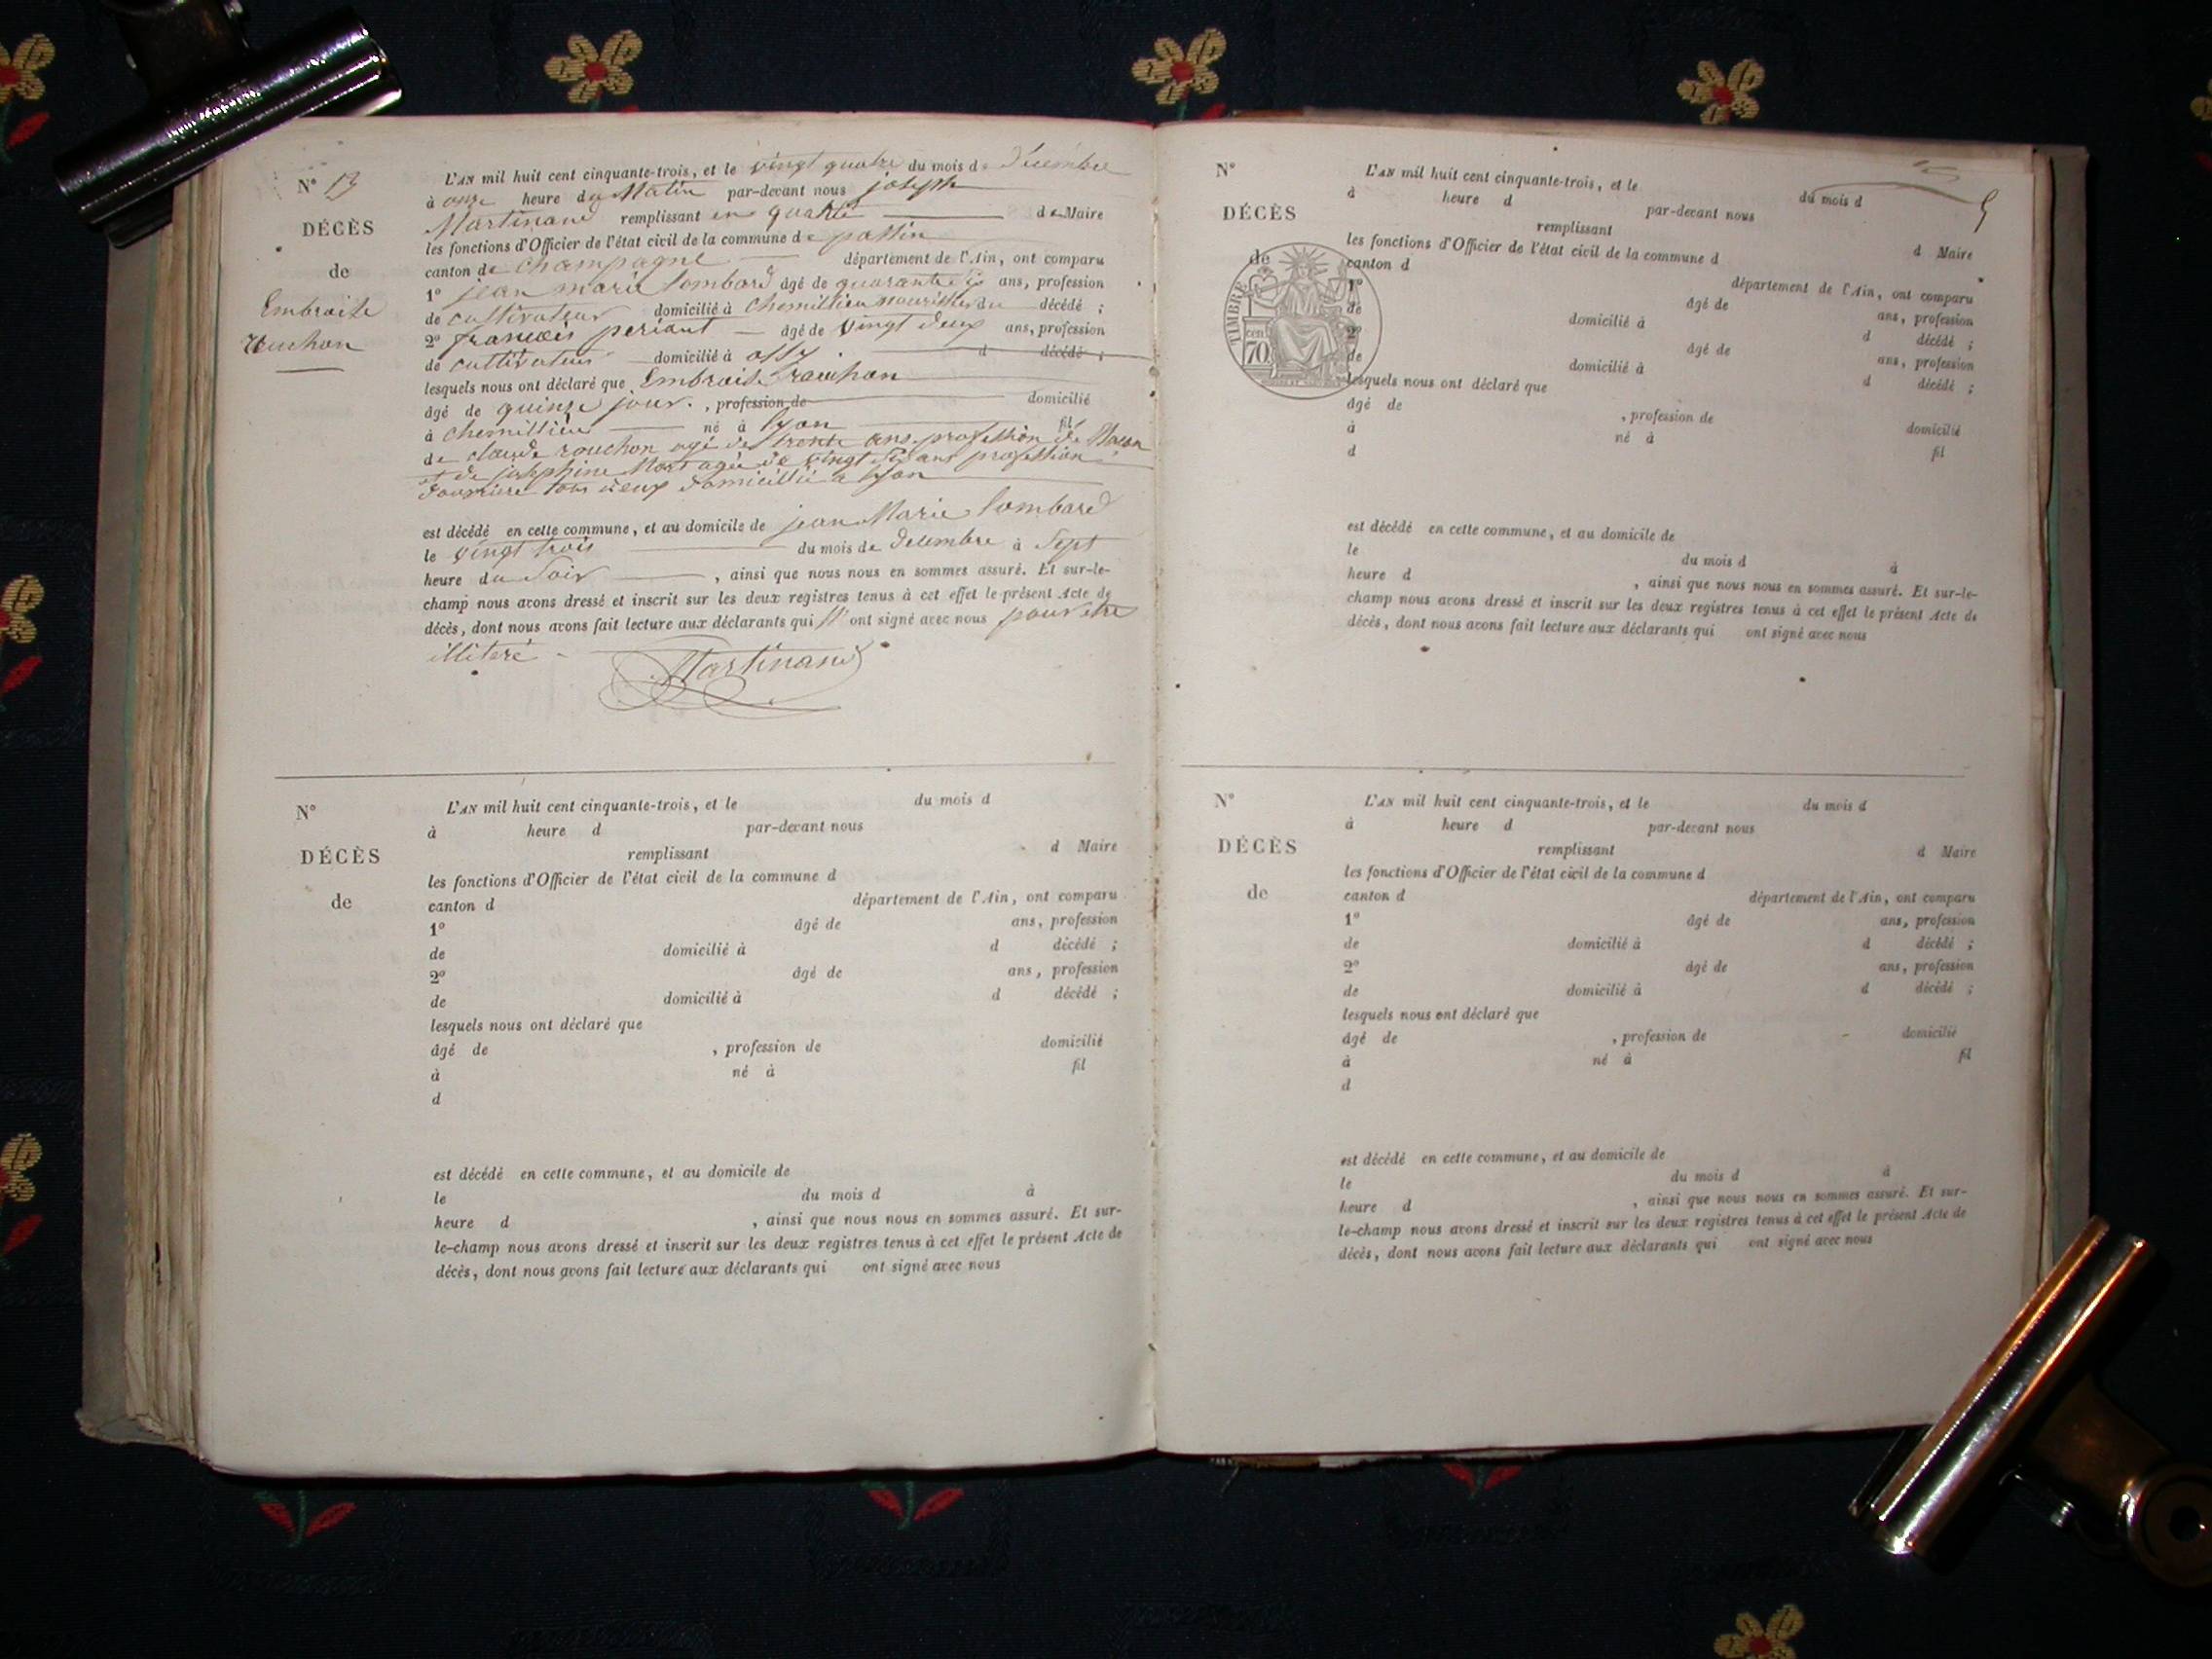 N° 13
DÉCÈS
de
Embroise
Rouchon
L'AN mil huit cent cinquante-trois, et le vingt quatre du mois de décembre
à onze heure du Matin par-devant nous joseph
Martinand remplissant en qualité de Maire
les fonctions d'Officier de l'état civil de la commune de passin
canton de champagne département de l'Ain, ont comparu
1° jean marie lombard âgé de quarante six ans, profession
de cultivateur domicilié à chemillieu nourissier du décédé ;
2° francois periant âgé de vingt deux ans, profession
de cultivateur domicilié à ossy d décédé ;
lesquels nous ont déclaré que Embroise rouchon
âgé de quinze jour. , profession de domicilié
à chemillieu né à lyon fil
de claude rouchon agé de trente ans profession de Macon
et de josephine Mor agée de vingt six ans profession
d'ouvriere tous deux domicilié a lyon
est décédé en cette commune, et au domicile de jean Marie lombard
le vingt trois du mois de decembre à Sept
heure du Soir , ainsi que nous nous en sommes assuré. Et sur-le-
champ nous avons dressé et inscrit sur les deux registres tenus à cet effet le présent Acte de
décès, dont nous avons fait lecture aux déclarants qui n' ont signé avec nous pour etre
illiteré
Martinand
N°
DÉCÈS
de
L'AN mil huit cent cinquante-trois, et le du mois d
à heure d par-devant nous
remplissant d Maire
les fonctions d'Officier de l'état civil de la commune d
canton d département de l'Ain, ont comparu
1° âgé de ans, profession
de domicilié à d décédé ;
2° âgé de ans, profession
de domicilié à d décédé ;
lesquels nous ont déclaré que
âgé de , profession de domicilié
à né à fil
d
est décédé en cette commune, et au domicile de
le du mois d à
heure d , ainsi que nous nous en sommes assuré. Et sur-
le-champ nous avons dressé et inscrit sur les deux registres tenus à cet effet le présent Acte de
décès, dont nous avons fait lecture aux déclarants qui ont signé avec nous
N°
DÉCÈS
de
TIMBRE
cen
70
L'AN mil huit cent cinquante-trois, et le du mois d
à heure d par-devant nous
remplissant d Maire
les fonctions d'Officier de l'état civil de la commune d
canton d département de l'Ain, ont comparu
1° âgé de ans, profession
de domicilié à d décédé ;
2° âgé de ans, profession
de domicilié à d décédé ;
lesquels nous ont déclaré que
âgé de , profession de domicilié
à né à fil
d
est décédé en cette commune, et au domicile de
le du mois d à
heure d , ainsi que nous nous en sommes assuré. Et sur-le-
champ nous avons dressé et inscrit sur les deux registres tenus à cet effet le présent Acte de
décès, dont nous avons fait lecture aux déclarants qui ont signé avec nous
N°
DÉCÈS
de
L'AN mil huit cent cinquante-trois, et le du mois d
à heure d par-devant nous
remplissant d Maire
les fonctions d'Officier de l'état civil de la commune d
canton d département de l'Ain, ont comparu
1° âgé de ans, profession
de domicilié à d décédé ;
2° âgé de ans, profession
de domicilié à d décédé ;
lesquels nous ont déclaré que
âgé de , profession de domicilié
à né à fil
d
est décédé en cette commune, et au domicile de
le du mois d à
heure d , ainsi que nous nous en sommes assuré. Et sur-
le-champ nous avons dressé et inscrit sur les deux registres tenus à cet effet le présent Acte de
décès, dont nous avons fait lecture aux déclarants qui ont signé avec nous